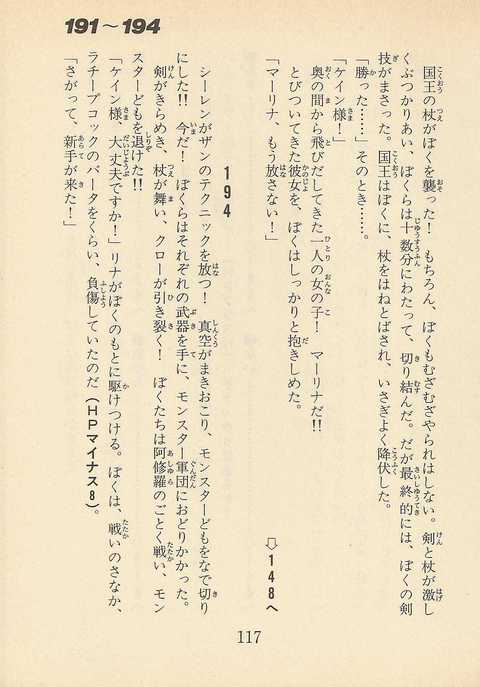 191～194
国王の杖がぼくを襲った！　もちろん、ぼくもむざむざやられはしない。剣と杖が激し
くぶつかりあい、ぼくらは十数分にわたって、切り結んだ。だが最終的には、ぼくの剣
技がまさった。国王はぼくに、杖をはねとばされ、いさぎよく降伏した。
「勝った……」そのとき……。
「ケイン様！」
奥の間から飛びだしてきた一人の女の子！　マーリナだ!!
とびついてきた彼女を、ぼくはしっかりと抱きしめた。
「マーリナ、もう放さない！」
⇩148へ
194
シーレンがザンのテクニックを放つ！　真空がまきおこり、モンスターどもをなで切り
にした!!　今だ！　ぼくらはそれぞれの武器を手に、モンスター軍団におどりかかった。
剣がきらめき、杖が舞い、クローが引き裂く！　ぼくたちは阿修羅のごとく戦い、モン
スターどもを退けた!!
「ケイン様、大丈夫ですか！」リナがぼくのもとに駆けつける。ぼくは、戦いのさなか、
ラチープコックのバータをくらい、負傷していたのだ（HPマイナス8）。
「さがって、新手が来た！」
117